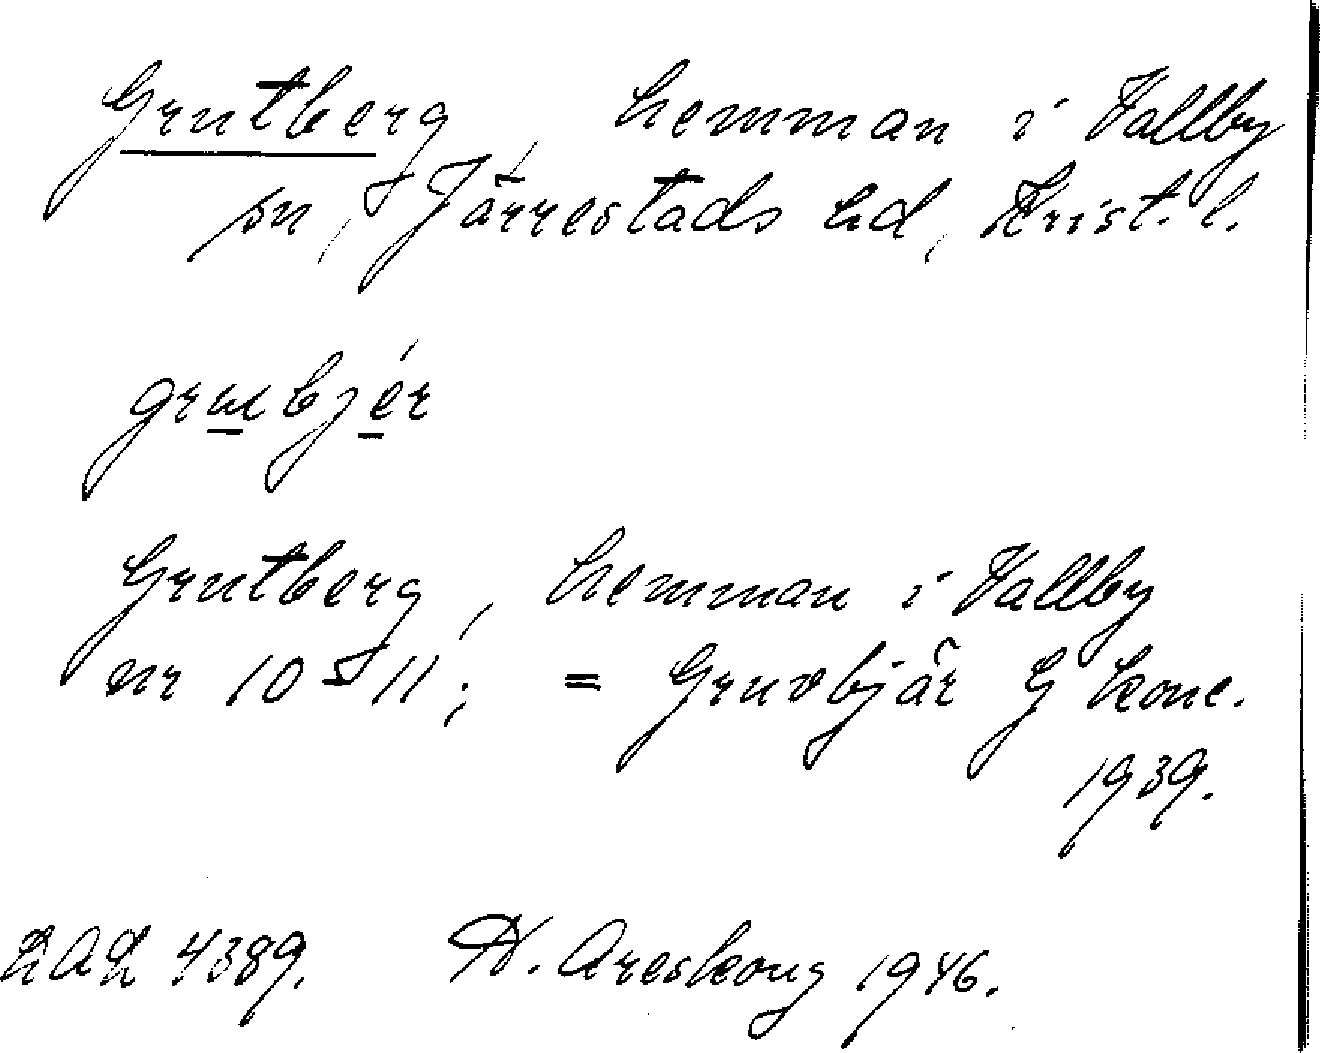 Grutberg, hemman i Vallby
sn, Järrestads hd, Krist. l.
grɯbjér
Grutberg, hemman i Vallby
nr 10-11; = Gruvbjär G konc.
1939.
LAL 4389. N. Areskoug 1946.